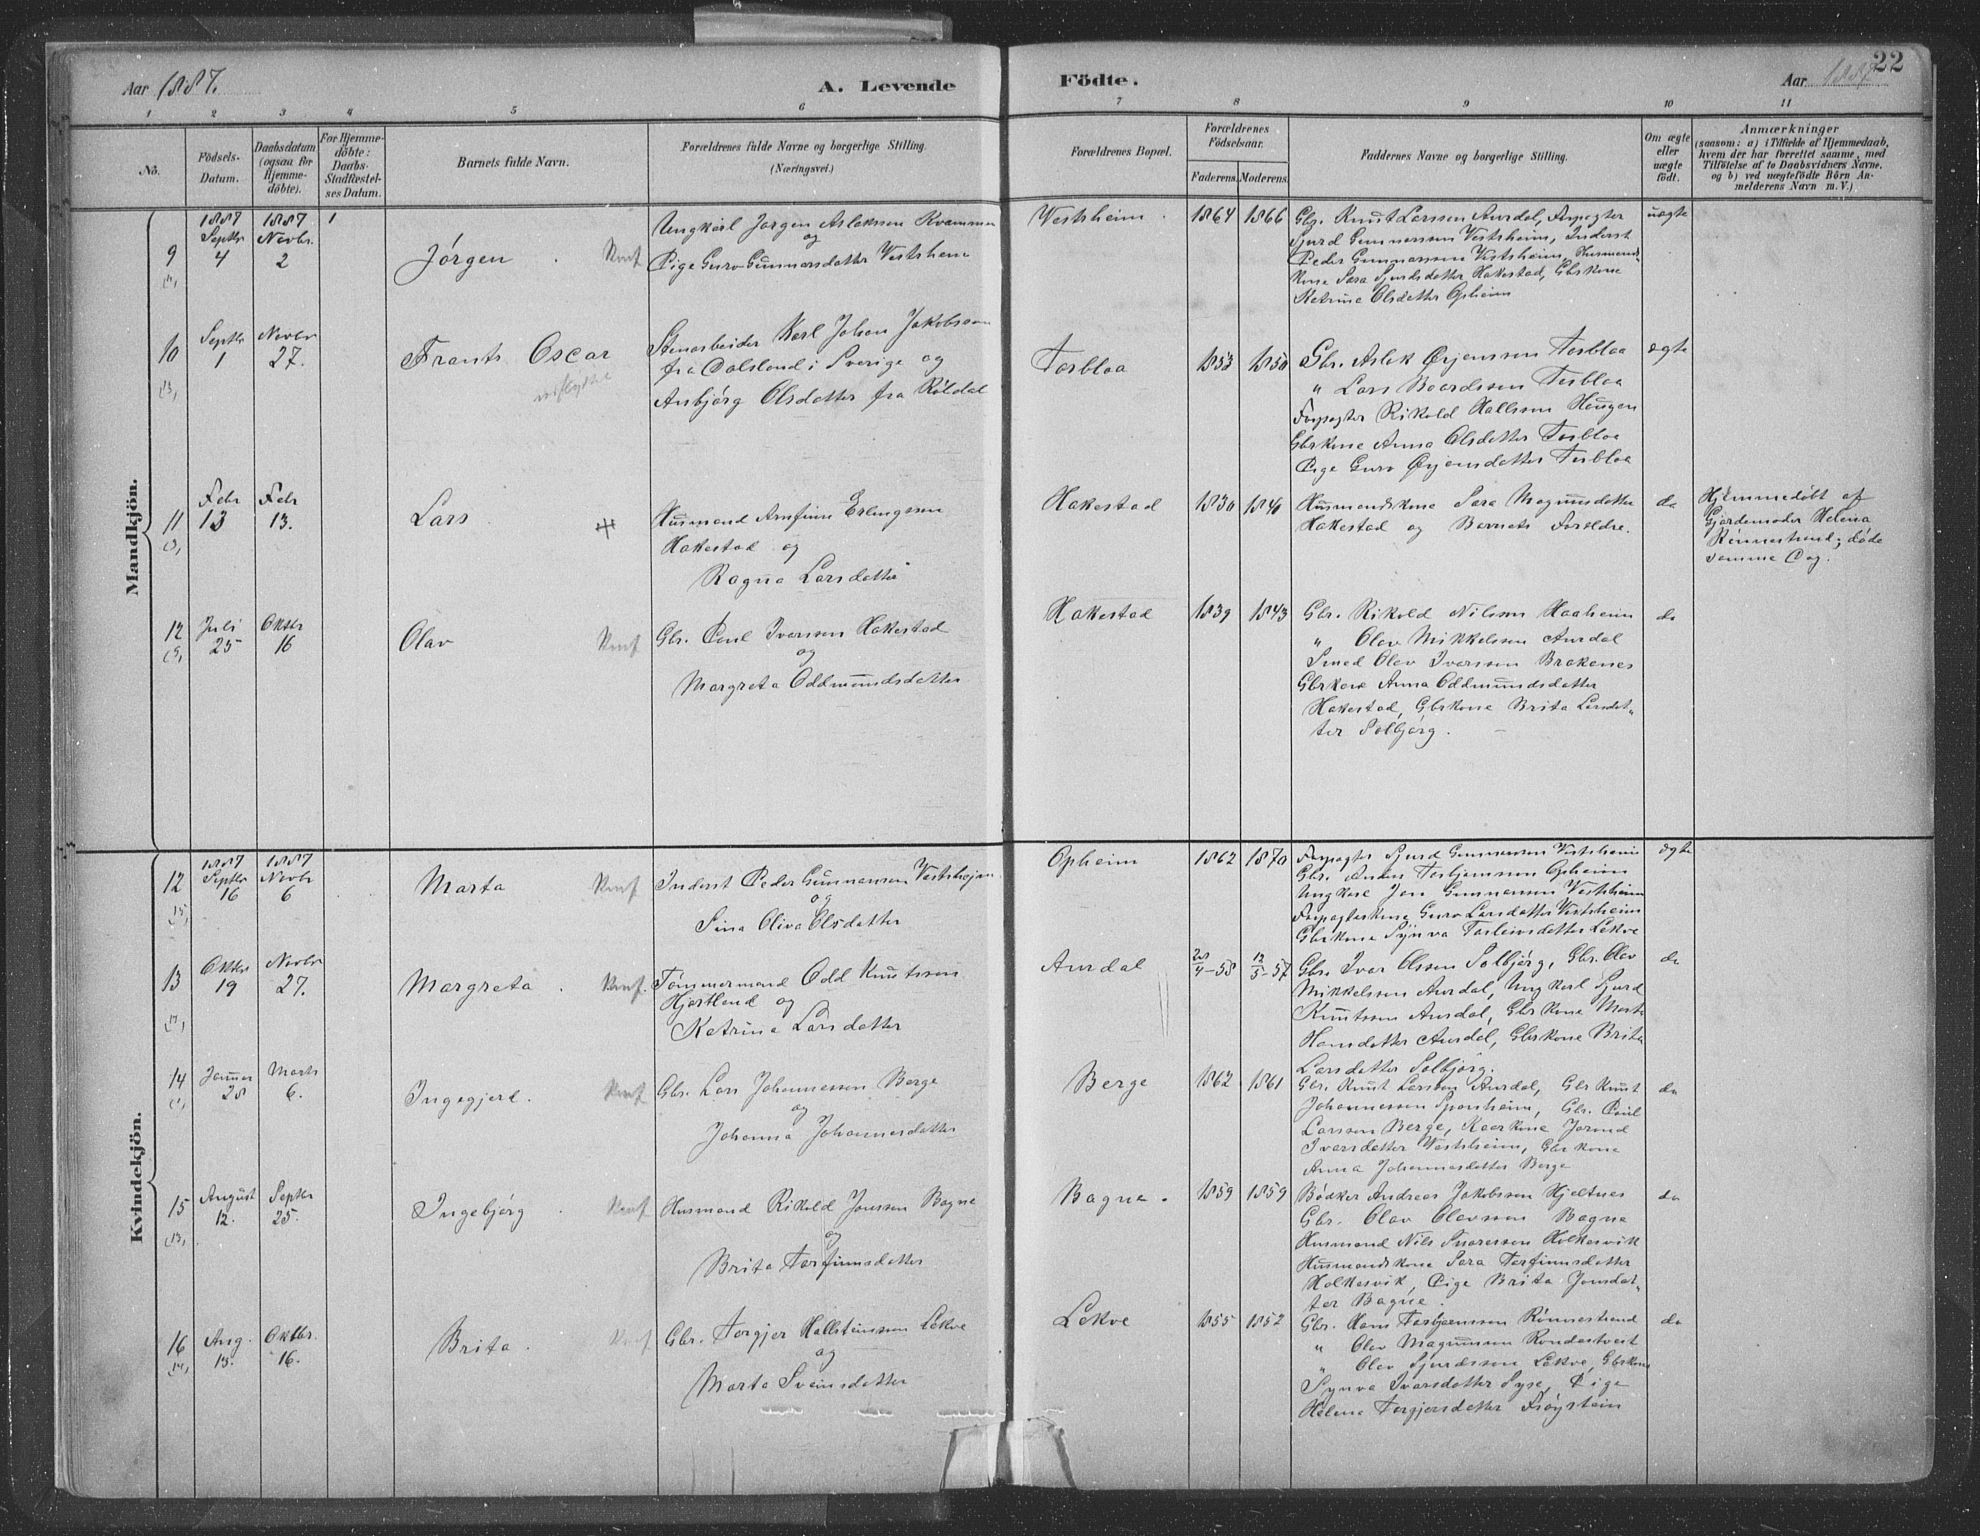 22
Aar 1887. A. Levende Födte. Aar 1887
1 2 3 4 5 6 7 8 9 10 11
No. Födsels-Datum. Daabsdatum (ogsaa for Hjemme-döbte). For Hjemme-döbte: Daabs-Stadfæstel-ses Datum. Barnets fulde Navn. Forældrenes fulde Navne og borgerlige Stilling. (Næringsvei.) Forældrenes Bopæl. Forældrenes Födselsaar. Faderens. Moderens. Faddernes Navne og borgerlige Stilling. Om ægte eller uægte födt. Anmærkninger (saasom: a) i Tilfælde af Hjemmedaab, hvem der har forrettet samme, med Tilföielse af to Daabsvidners Navne, og b) ved uægtefödte Börn An-melderens Navn m. V.)
Mandkjön.
9 1887 Septbr 4 1887 Novbr. 2 1 Jørgen. Konf
Ungkarl Jørgen Aslaksen Kvammen
og
Pige Guro Gunnarsdatter Vestsheim
Vestsheim. 1864 1866
Gbr. Knut Larssen Aurdal, Forpagter
Sjurd Gunnarssen Vestsheim, Inderst
Peder Gunnarssen Vestsheim, Husmands
kone Sara Sjurdsdatter Hakestad, Gbrkone
Katrina Olsdatter Opheim
uægte
10 Septbr 1 Novbr 27. Frants Oscar
Stenarbeider Karl Johan Jakobsson
fra Dalsland i Sverige og
Anbjørg Olsdatter fra Røldal
Torbloa 1853 1850
Gbr. Aslak Ørjanssen Torbloa
" Lars Baardssen Torbloa
Forpagter Rikold Hallssen Haugen
Gbrkone Anna Olsdatter Torbloa
Pige Guro Ørjansdatter Torbloa
ægte
11 Febr 13 Febr 13. Lars
Husmand Arnfinn Erlingssen
Hakestad og
Ragna Larsdatter
Hakestad 1830 1840
Husmandskone Sara Magnusdatter
Hakestad og Barnets Forældre.
do
Hjemmedøbt af
Gjordemoder Helena
Rønnestrand; døde
samme Dag.
12 Juli 25 Oktbr 16 Olav Konf
Gbr. Paul Iverssen Hakestad
og
Margreta Oddmundsdatter
Hakestad 1839 1843
Gbr. Rikold Nilssen Haaheim
" Olav Mikkelssen Aurdal
Smed Olav Iverssen Brakenes
Gbrkone Anna Oddmundsdatter
Hakestad, Gbrkone Brita Larsdat-
ter Solbjørg.
do
Kvindekjön.
12 1887 Septbr 16 1887 Novbr 6 Marta Konf
Inderst Peder Gunnarssen Vestsheim
og
Sina Oliva Olsdatter
Opheim 1862 1870
Forpagter Sjurd Gunnarssen Vestsheim
Gbr. Torbjørnssen Opheim
Ungkarl Jon Gunnarssen Vestsheim
Forpagterkone Guro Larsdatter Vestsheim
Gbrkone Synva Torleivsdatter Lekve
ægte
13 Oktbr 19 Novbr 27. Margreta. Konf.
Tømmermand Odd Knutssen
Hjartland og
Katrina Larsdatter
Aurdal 28/4-58 12/5-57
Gbr. Ivar Olssen Solbjørg, Gbr. Olav
Mikkelssen Aurdal, Ungkarl Sjurd
Knutssen Aurdal, Gbrkone Marta
Hansdatter Aurdal, Gbrkone Brita
Larsdatter Solbjørg.
do
14 Januar 28 Marts 6. Ingegjerd. Konf
Gbr. Lars Johannessen Berge
og
Johanna Johannesdatter
Berge 1862 1861
Gbr. Knut Larssen Aurdal, Gbr Knut
Johannessen Sponheim, Gbr. Paul
Larssen Berge, Kaarkone Jorund
Ivarsdatter Vestsheim, Gbrkone
Anna Johannesdatter Berge
do
15 August 12. Septbr 25. Ingebjørg. Konf
Husmand Rikold Jonssen Bagna
og
Brita Torfinnsdatter
Bagna. 1859 1859
Bødker Andreas Jakobssen Hjeltnes
Gbr. Olav Olavssen Bagna
Husmand Nils Holkesvik
Husmandskone Sara Torfinnsdatter
Holkesvik, Pige Brita Jonsdat-
ter Bagna.
do
16 Aug. 13. Oktbr. 16. Brita. Konf
Gbr. Torgjer Hallsteinssen Lekve
og
Marta Sveinsdatter
Lekve 1855 1852
Gbr. Hans Torbjørnssen Rønnestrand
" Olav Magnussen Rondestveit
" Olav Sjurdssen Lekve, Gbrkone
Synva Ivarsdatter Syse, Pige
Helena Torgjersdatter Frøystein
do